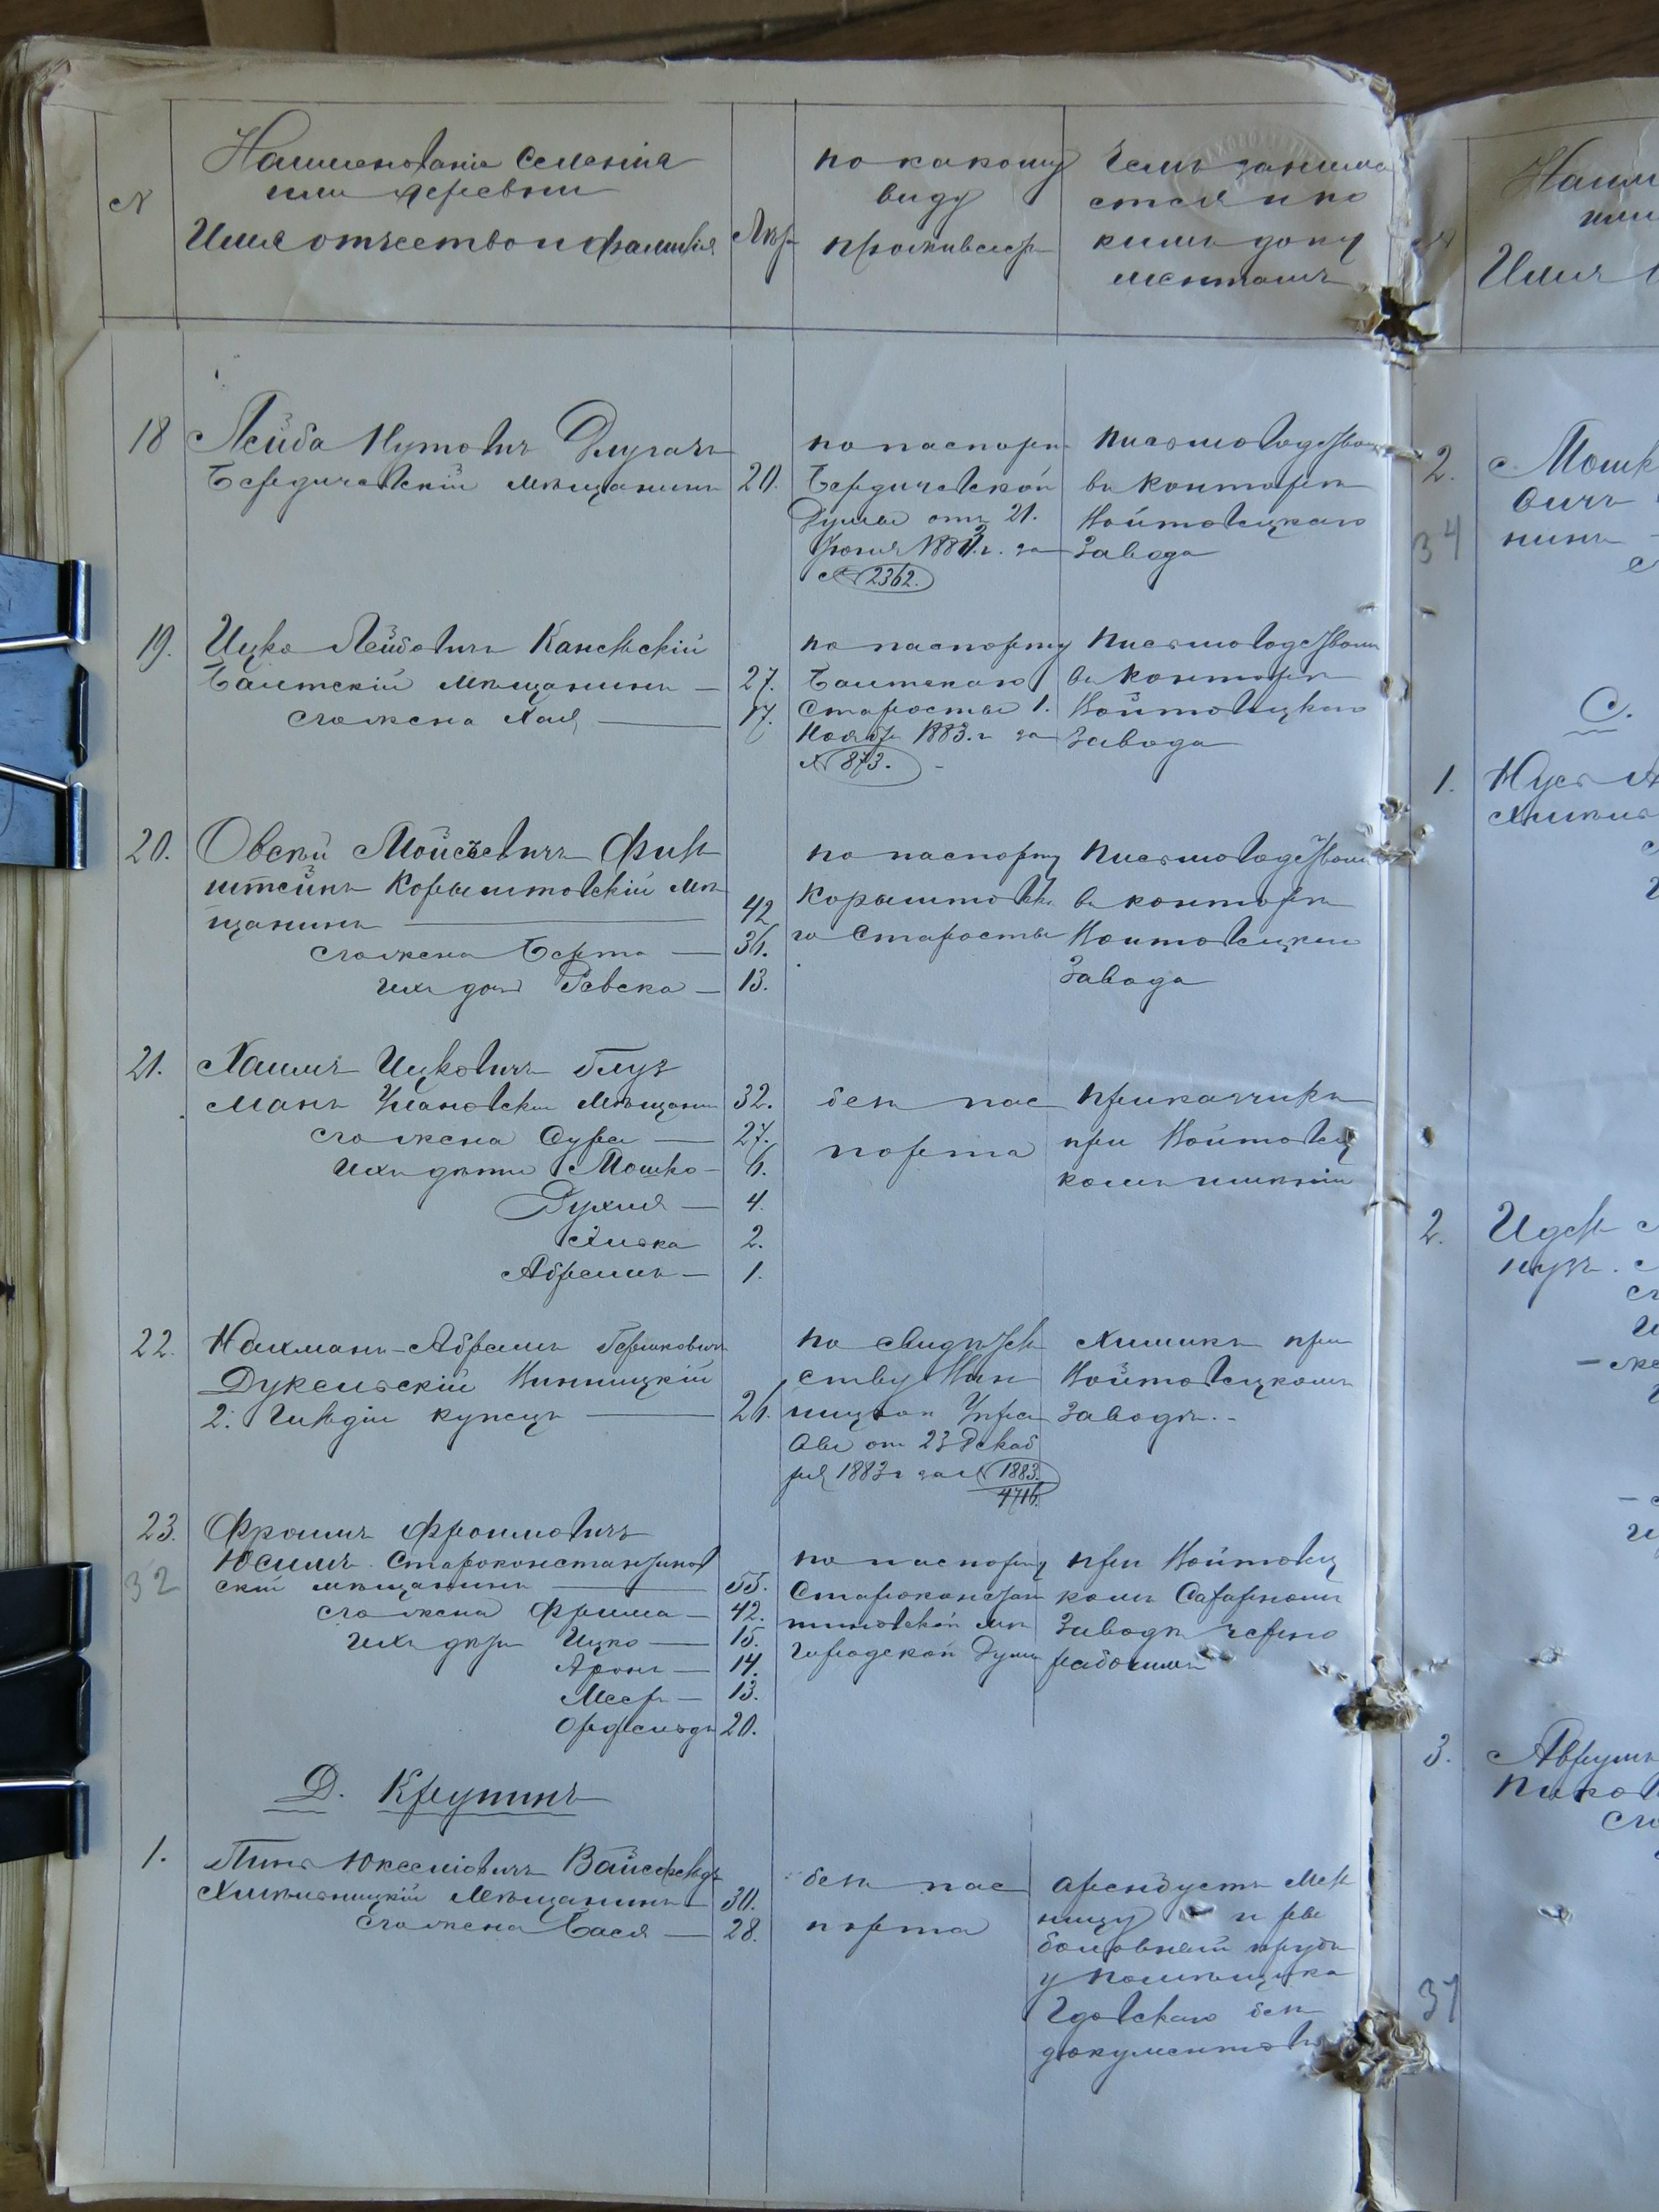 N
Наименованіе селенія
или деревни
Имя отчество и фамилія
Лѣт
по какому
виду
проживает
Чемъ занима
ется и по
кимъ доку
ментамъ
18 Лейба Нутовичъ Длугачъ
Бердичевскій мѣщанинъ 20.
по паспорту
Бердичевской
Думы отъ 21.
Іюня 188 г. за
№ 2362.
Письмоводствомъ
въ конторѣ
Войтовецкаго
Завода
19. Ицко Лейбовичъ Каневскій
Балтскій мѣщанинъ — 27.
его жена Хая — 17.
по паспорту
Балтскаго
Старосты 1.
Ноябр 1883. г за
№ 873.
Письмоводством
въ конторѣ
Войтовецкаго
Завода
20. Овсѣй Мойсѣевичъ Финк
штейнъ Корыштовскій мѣ
щанинъ — 42
его жена Берта — 36.
ихъ дочь Ревека — 13.
по паспорту
Корыштовска
го Старосты
Письмоводством
въ конторѣ
Войтовецкаго
Завода
21. Хаимъ Ицковичъ Глуз
манъ Умановскій мѣщанин 32.
его жена Сура — 27.
ихъ дѣти Мошко — 6.
Рухля — 4.
Хивка 2.
Абрамъ — 1.
безъ пас
порта
Приказчикъ
при Войтовец
комъ имѣніи
22. Нахманъ-Абрамъ Гершковичъ
Дукельскій Винницкій
2. Гильдіи купецъ — 26.
по Свидѣтель
ству Вин
ницкой Упра
вы от 23 Декаб
ря 1883 г за № 1883.
4716.
Химикъ при
Войтовецкомъ
Заводѣ. -
23. Фроимъ Фроимовичъ
Юсимъ Староконстантинов
скій мѣщанинъ — 55.
32
его жена Фрима — 42.
ихъ дѣти Ицко — 15.
Аронъ — 14.
Меер — 13.
20.
по паспорту
Староконстан
тиновской мѣ
Городской Думы
при Войтовец
комъ Сахарном
Заводѣ черно
рабочимъ
Д. Крупинъ
1. Пиня Вайсфельдъ
Хмѣльницкій Мѣщанинъ 30.
его жена Бася — 28.
безъ пас
порта
арендуетъ Мель
ницу и ры
боловный прудъ
у помѣщика
Здовскаго без
документовъ
N
Наим
или
Имя
2. Мошк
вичъ
нинъ
34
С.
1. Нусь
Хмѣль
2.
3. Аврумъ
37